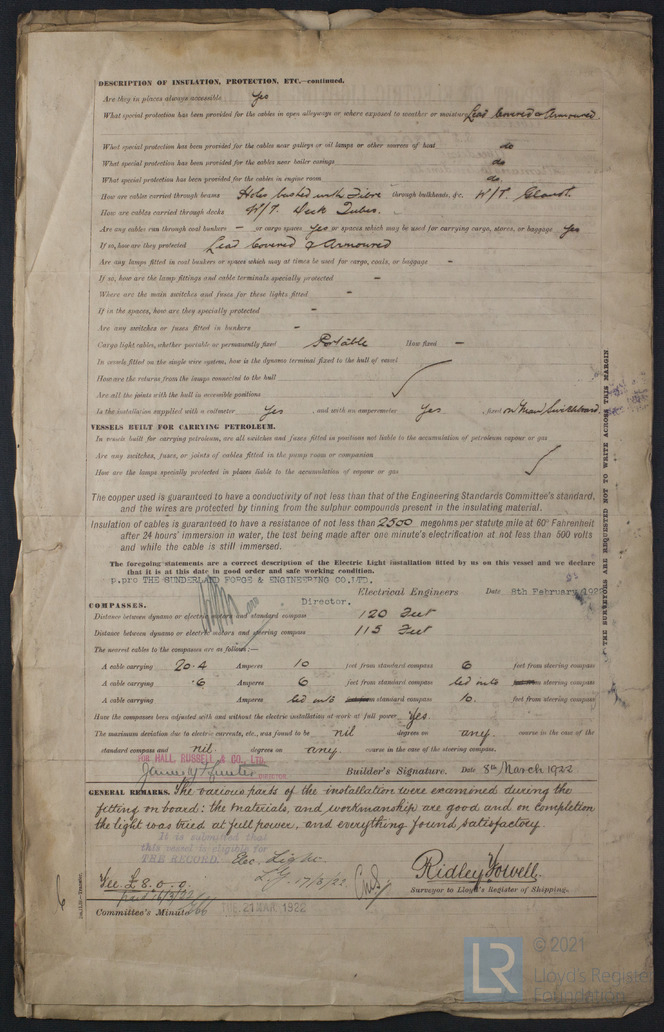 DESCRIPTION OF INSULATION, PROTECTION, ETC.—continued.
Are they in places always accessible Yes
What special protection has been provided for the cables in open alleyways or where exposed to weather or moisture Lead Covered & Armoured.
What special protection has been provided for the cables near galleys or oil lamps or other sources of heat do
What special protection has been provided for the cables near boiler casings do
What special protection has been provided for the cables in engine room do
How are cables carried through beams Holes bushed with Fibre through bulkheads, &c. W/T. Glands.
How are cables carried through decks W/T. Deck Tubes.
Are any cables run through coal bunkers — or cargo spaces Yes or spaces which may be used for carrying cargo, stores, or baggage Yes
If so, how are they protected Lead Covered & Armoured
Are any lamps fitted in coal bunkers or spaces which may at times be used for cargo, coals, or baggage -
If so, how are the lamp fittings and cable terminals specially protected -
Where are the main switches and fuses for these lights fitted -
If in the spaces, how are they specially protected -
Are any switches or fuses fitted in bunkers -
Cargo light cables, whether portable or permanently fixed Portable How fixed —
In vessels fitted on the single wire system, how is the dynamo terminal fixed to the hull of vessel
How are the returns from the lamps connected to the hull
Are all the joints with the hull in accessible positions
Is the installation supplied with a voltmeter Yes, and with an amperemeter Yes, fixed on Main Switchboard.
VESSELS BUILT FOR CARRYING PETROLEUM.
In vessels built for carrying petroleum, are all switches and fuses fitted in positions not liable to the accumulation of petroleum vapour or gas
Are any switches, fuses, or joints of cables fitted in the pump room or companion
How are the lamps specially protected in places liable to the accumulation of vapour or gas
The copper used is guaranteed to have a conductivity of not less than that of the Engineering Standards Committee's standard,
and the wires are protected by tinning from the sulphur compounds present in the insulating material.
Insulation of cables is guaranteed to have a resistance of not less than 2500 megohms per statute mile at 60° Fahrenheit
after 24 hours' immersion in water, the test being made after one minute's electrification at not less than 500 volts
and while the cable is still immersed.
The foregoing statements are a correct description of the Electric Light installation fitted by us on this vessel and we declare
that it is at this date in good order and safe working condition.
p.pro THE SUNDERLAND FORGE & ENGINEERING CO.LTD.
Electrical Engineers Date 8th February 1922
Director.
COMPASSES.
Distance between dynamo or electric motors and standard compass 120 Feet
Distance between dynamo or electric motors and steering compass 115 Feet
The nearest cables to the compasses are as follows:—
A cable carrying 20.4 Amperes 10 feet from standard compass 6 feet from steering compass
A cable carrying .6 Amperes 6 feet from standard compass led into steering compass
A cable carrying Amperes led into standard compass 10. feet from steering compass
Have the compasses been adjusted with and without the electric installation at work at full power Yes.
The maximum deviation due to electric currents, etc., was found to be nil degrees on any. course in the case of the
standard compass and nil degrees on any. course in the case of the steering compass.
FOR HALL, RUSSELL & CO., LTD.
DIRECTOR.
Builder's Signature. Date 8th March 1922
GENERAL REMARKS. The various parts of the installation were examined during the
fitting on board: the materials, and workmanship are good and on completion
the light was tried at full power, and everything found satisfactory.
It is submitted that
this vessel is eligible for
THE RECORD. Elec. Light.
17/3/22
Fee £8.0.0.
Surveyor to Lloyd's Register of Shipping.
Committee's Minute TUE. 21 MAR 1922
THE SURVEYORS ARE REQUESTED NOT TO WRITE ACROSS THIS MARGIN
LR
© 2021
Lloyd's Register
Foundation